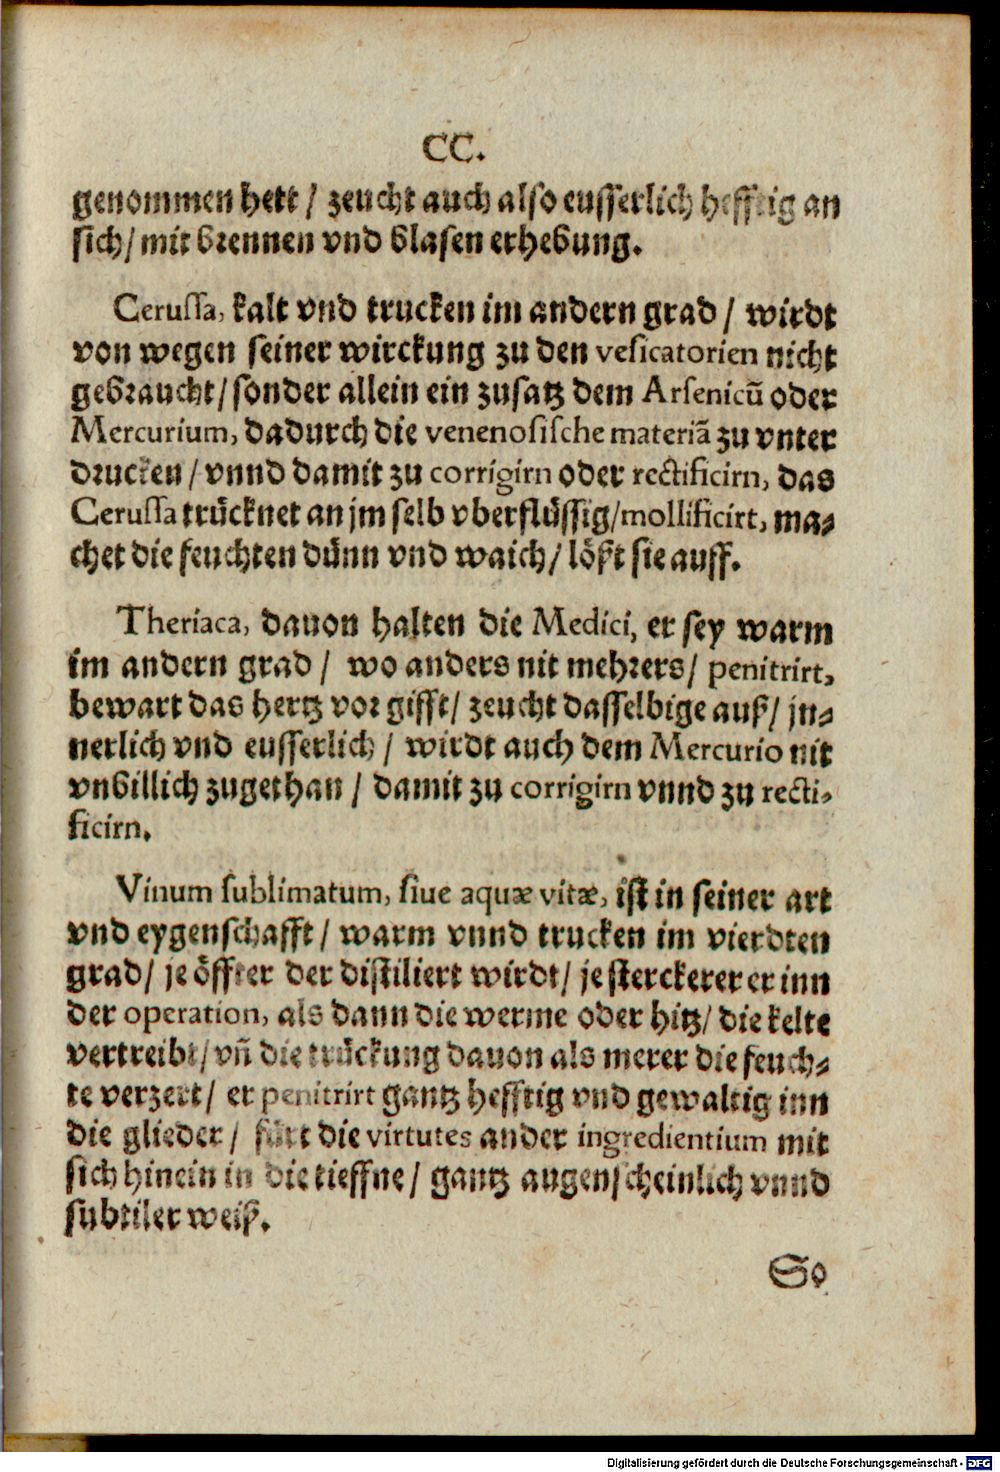 CC.
genommen hett / zeucht auch also eusserlich hefftig an
sich/ mit brennen vnd blasen erhebung.
Cerussa, kalt vnd trucken im andern grad / wirdt
von wegen seiner wirckung zu den vesicatorien nicht
gebraucht/ sonder allein ein zusatz dem Arsenicū oder
Mercurium, dadurch die venenosische materiā zu vnter
drucken / vnnd damit zu corrigirn oder rectificirn, das
Cerussa trücknet an jm selb vberflüssig/mollificirt, ma-
chet die feuchten dünn vnd waich/ löst sie auff.
Theriaca, dauon halten die Medici, er sey warm
im andern grad / wo anders nit mehrers/ penitrirt,
bewart das hertz vor gifft/ zeucht dasselbige auß/ jn-
nerlich vnd eusserlich / wirdt auch dem Mercurio nit
vnbillich zugethan / damit zu corrigirn vnnd zu recti-
ficirn.
Vinum sublimatum, siue aquæ vitæ, ist in seiner art
vnd eygenschafft/ warm vnnd trucken im vierdten
grad/ je öffter der distiliert wirdt/ je sterckerer er inn
der operation, als dann die werme oder hitz/ die kelte
vertreibt/ vn̄ die trückung dauon als merer die feuch-
te verzert/ er penitrirt gantz hefftig vnd gewaltig inn
die glieder/ fürt die virtutes ander ingredientium mit
sich hinein in die tieffne/ gantz augenscheinlich vnnd
subtiler weiß.
So
Digitalisierung gefördert durch die Deutsche Forschungsgemeinschaft - DFG